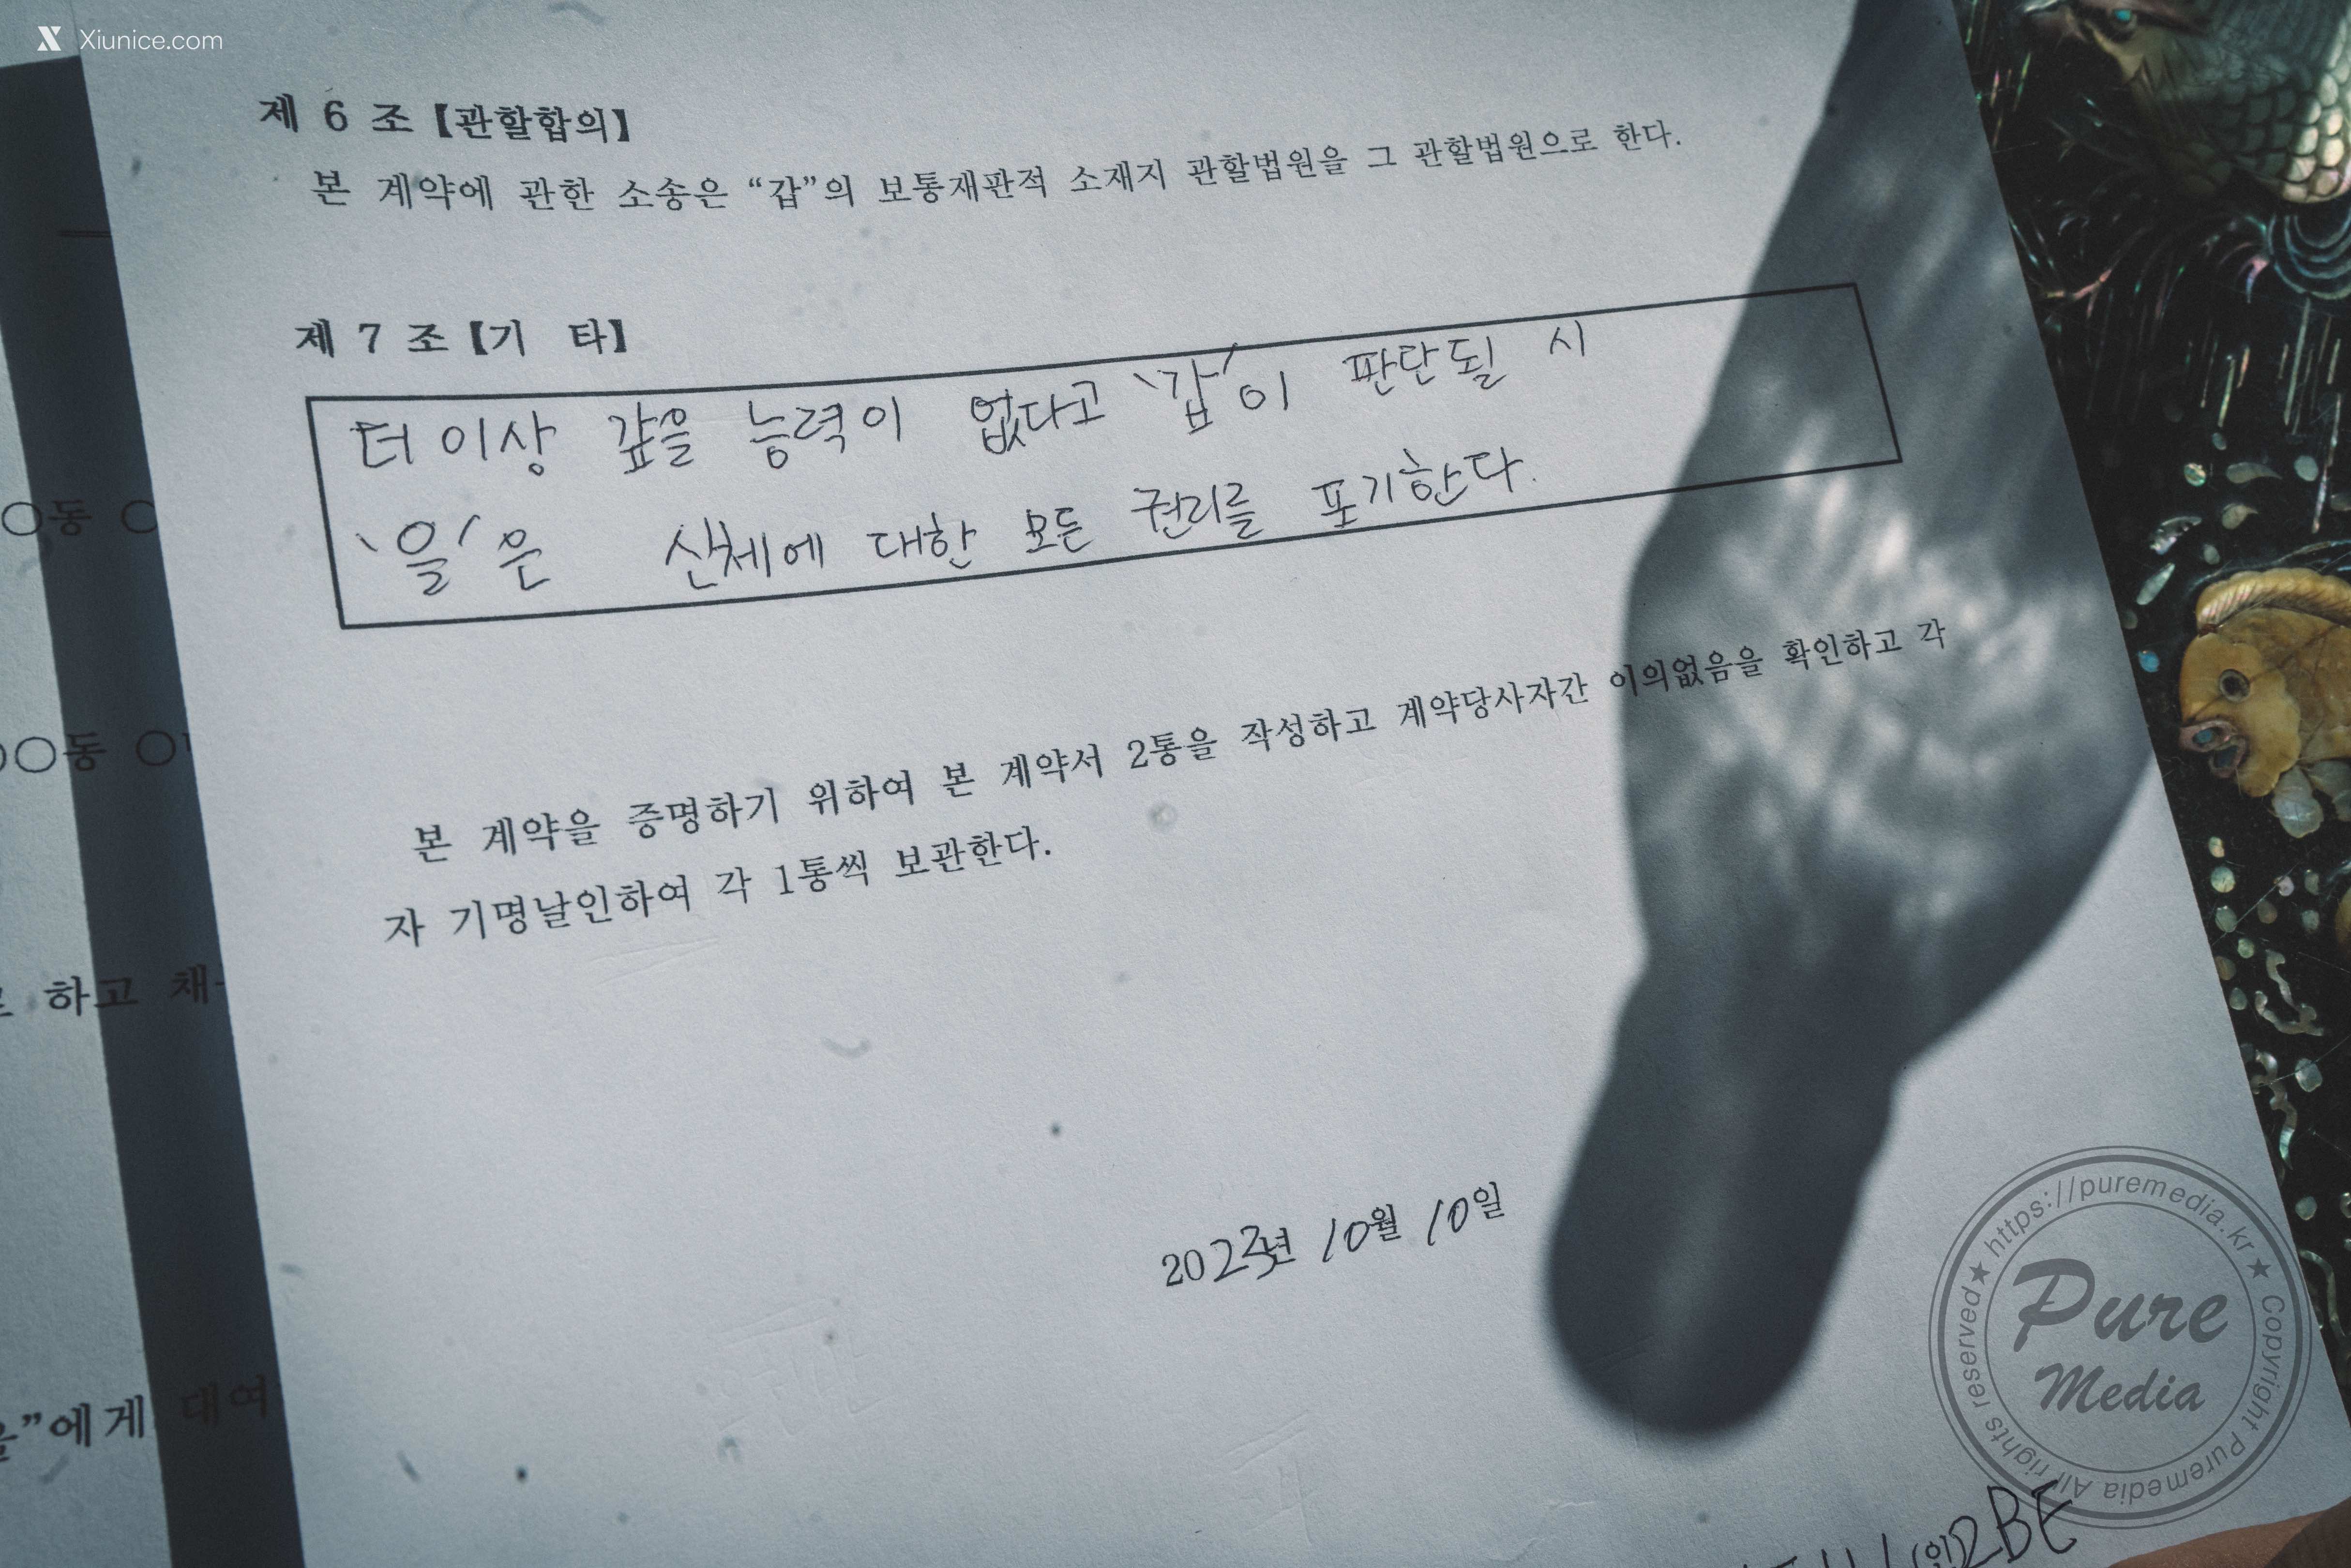 Xiunice.com
제 6 조【관할합의】
본 계약에 관한 소송은 “갑”의 보통재판적 소재지 관할법원을 그 관할법원으로 한다.
제 7 조【기 타】
더 이상 갚을 능력이 없다고 '갑'이 판단될 시
'을'은 신체에 대한 모든 권리를 포기한다.
본 계약을 증명하기 위하여 본 계약서 2통을 작성하고 계약당사자간 이의없음을 확인하고 각
자 기명날인하여 각 1통씩 보관한다.
2023년 10월 10일
동
동
하고
”에게 대여
(인)
BE
https://puremedia.kr ★ Copyright Puremedia All rights reserved ★
Pure
Media